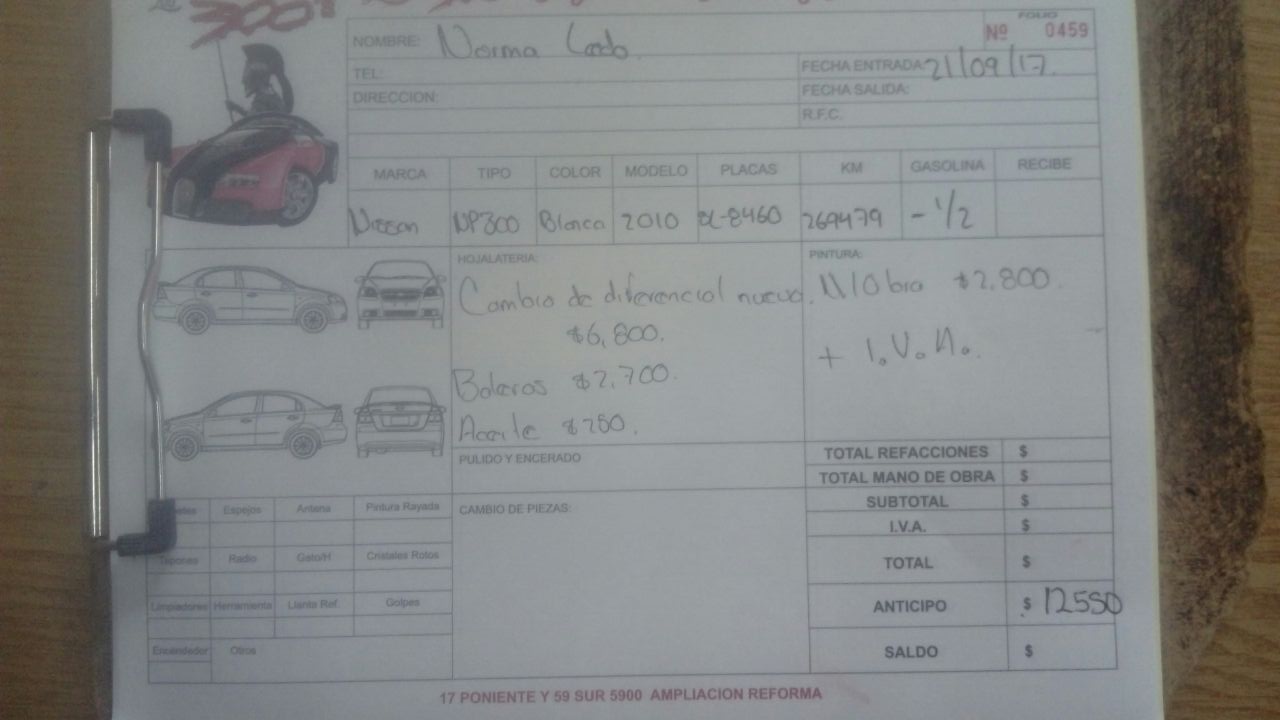 300
FOLIO
Nº 0459
NOMBRE: Norma
TEL:
FECHA ENTRADA: 21/09/17.
DIRECCION:
FECHA SALIDA:
R.F.C.
MARCA TIPO COLOR MODELO PLACAS KM GASOLINA RECIBE
Nissan NP300 Blanca 2010 269479 - 1/2
HOJALATERIA:
Cambio de diferencial nuevo.
$6,800.
Baleros $2,700.
Aceite $250.
PINTURA:
M/Obra $2,800.
+ I.V.A.
PULIDO Y ENCERADO
CAMBIO DE PIEZAS:
Espejos Antena Pintura Rayada
Tapones Radio Gato/H Cristales Rotos
Limpiadores Herramienta Llanta Ref. Golpes
Encendedor Otros
TOTAL REFACCIONES $
TOTAL MANO DE OBRA $
SUBTOTAL $
I.V.A. $
TOTAL $
ANTICIPO $ 12550
SALDO $
17 PONIENTE Y 59 SUR 5900 AMPLIACION REFORMA